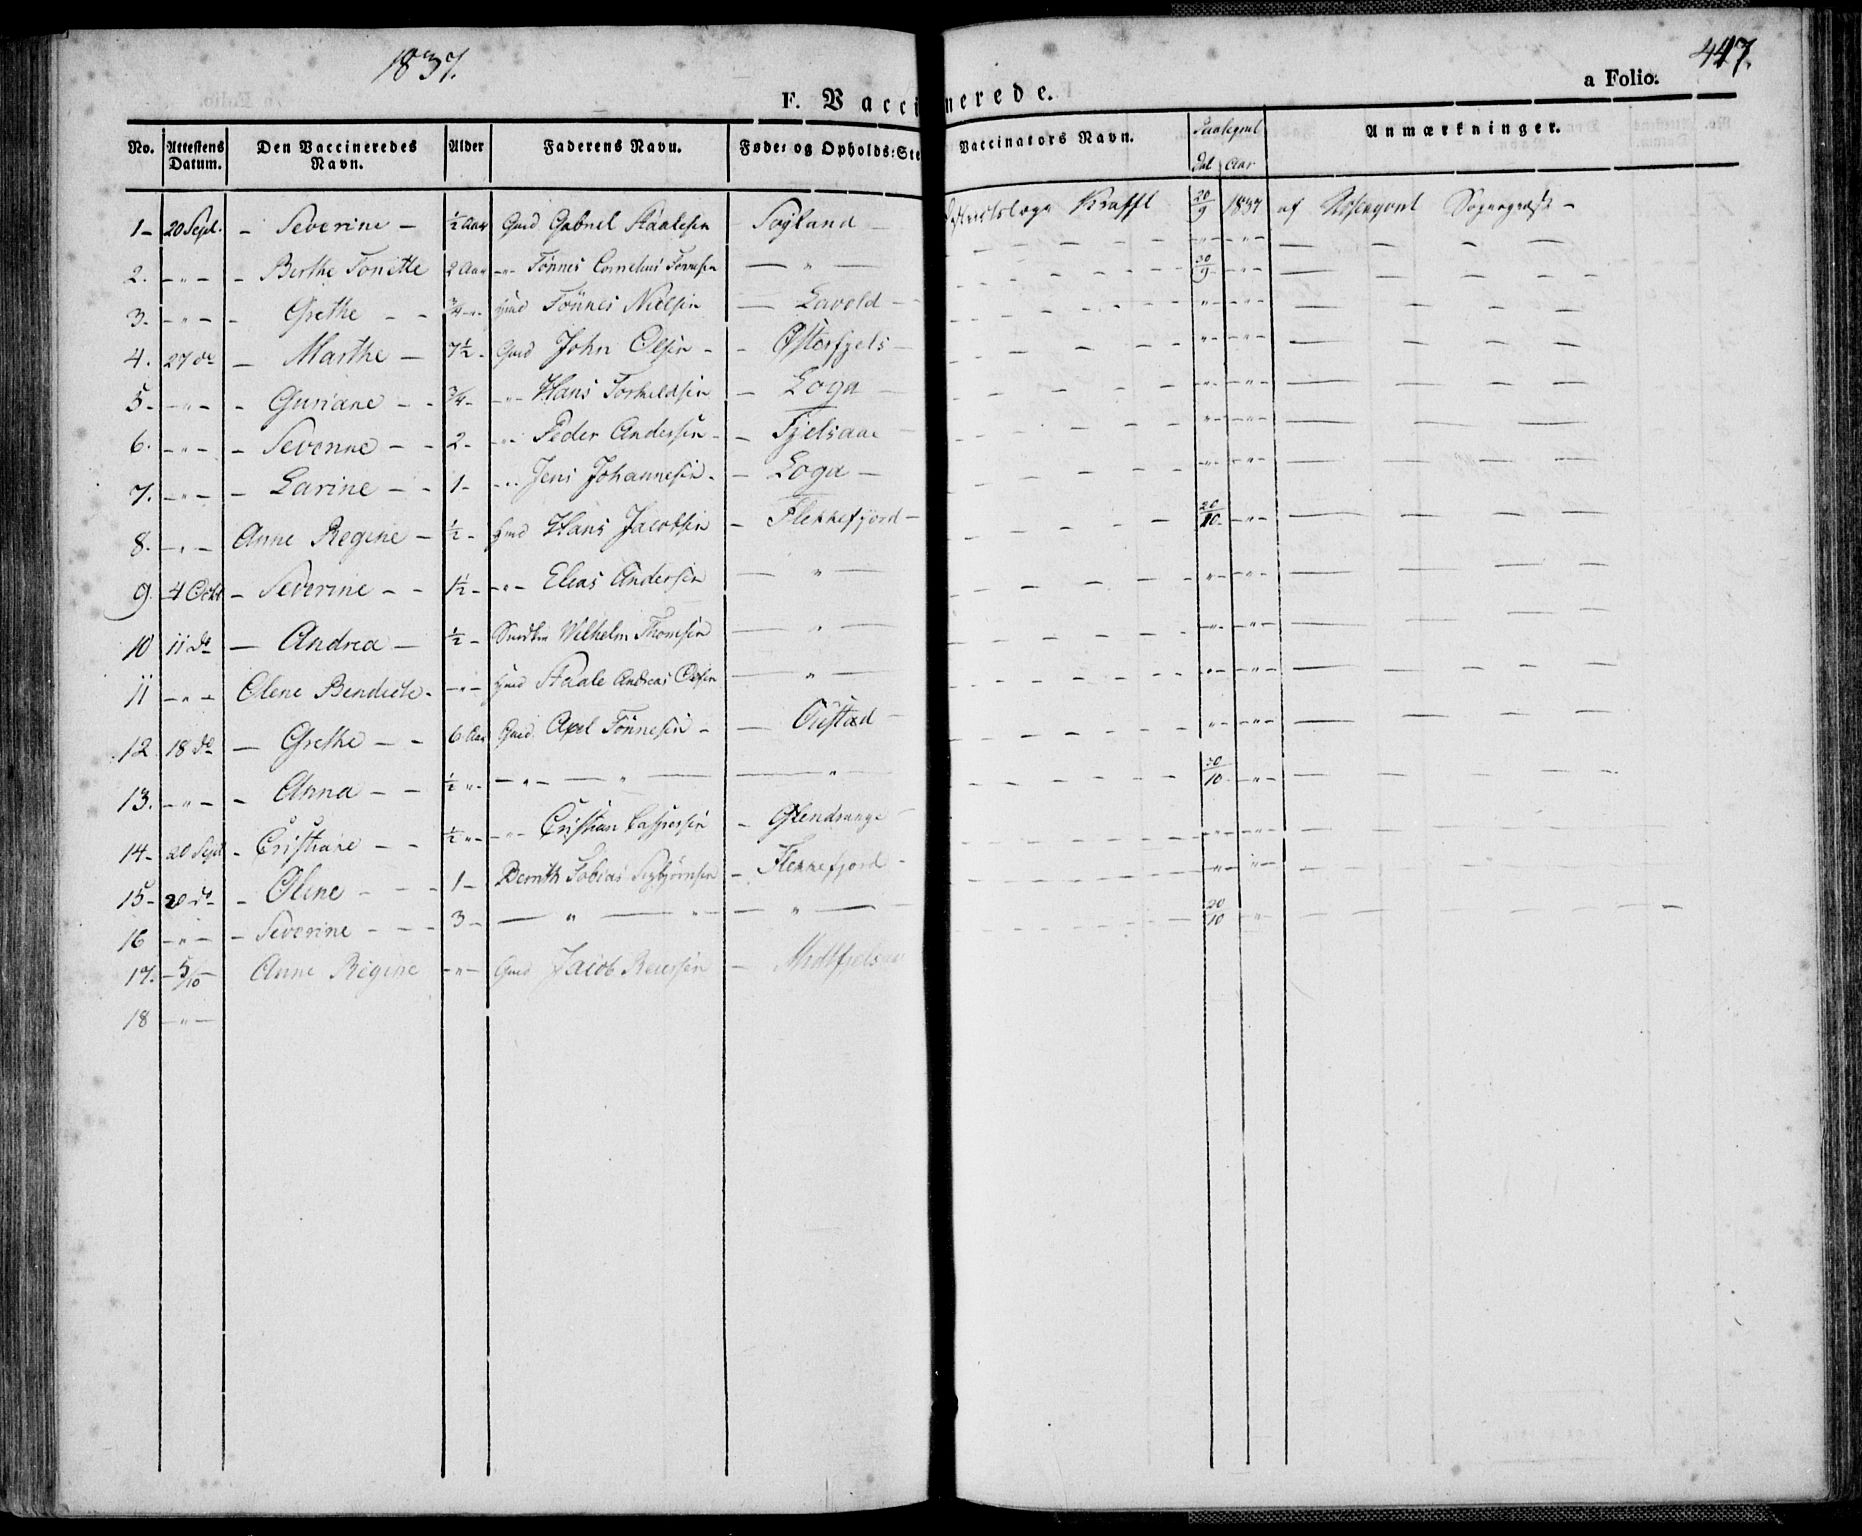 1837.
447.
F. Vaccinerede.
a Folio.
No. Attestens Datum. Den Vaccineredes Navn. Alder Faderens Navn. Føde- og Opholds-Ste Vaccinators Navn. Anmærkninger.
Dat Aar
1 - 20 Sept. - Severine - ½ Aar Gmd Gabriel Staalesen - Søyland - Krafft 20/9 1837 af Sognepræst -
2. - " - - Berthe Tonette 2 Aar - " - Tönnes Cornelius Tönnesen - " - - " - - " -
3. - " - - Grethe - - ¾ - " - Hmd Tönnes Nielsen - Lavold - 30/9 - " -
4. 27 do - Marthe - 7½ - Gmd John Olsen - - Østerfjels - " - - " -
5 - - " - - Guriane - - ¾ - - " - Hans Torkeldsen - Loga - - " - - " -
6. - " - - Severine - - 2 - - " - Peder Andersen - - Fjelsaae - " - - " -
7. - " - - Larine - - 1 - - " - Jens Johannesen - - Loga - - " - - " -
8. - " - Anne Regine - ½ - Hmd Hans Jacobsen - Flekkefjord - 20/10 - " -
9. 4 Octb - Severine - - 1½ - - " - Elias Andersen - " - - " - - " -
10 11 do - Andrea - ½ - Wilhelm Thomesen - " - - " - - " -
11 - " - Olene Bendicte - - " - Hmd Staale Andreas Olsen - " - - " - - " -
12 18 do - Grethe - - 6 Aar Gmd. Axel Tönnesen - - Öustad - " - - " -
13. - " - - Anna - - ½ " - - " - " - - " - 30/10 - " -
14 - 20 Sept - Cristiane - - ½ " - - " - Cristian Caspersen - Glendrange - " - - " -
15 - 20 do - Olene - - - 1 - Bernth Tobias Sigbjörnsen - Flekkefjord - - " - - " -
16 - " - - Severine - - - 3 - - " - " - - " - 20/10 - " -
17. - 5/10 - Anne Regine - " - Gmd Jacob Reiersen - Midtfjelsaae
18 - " -